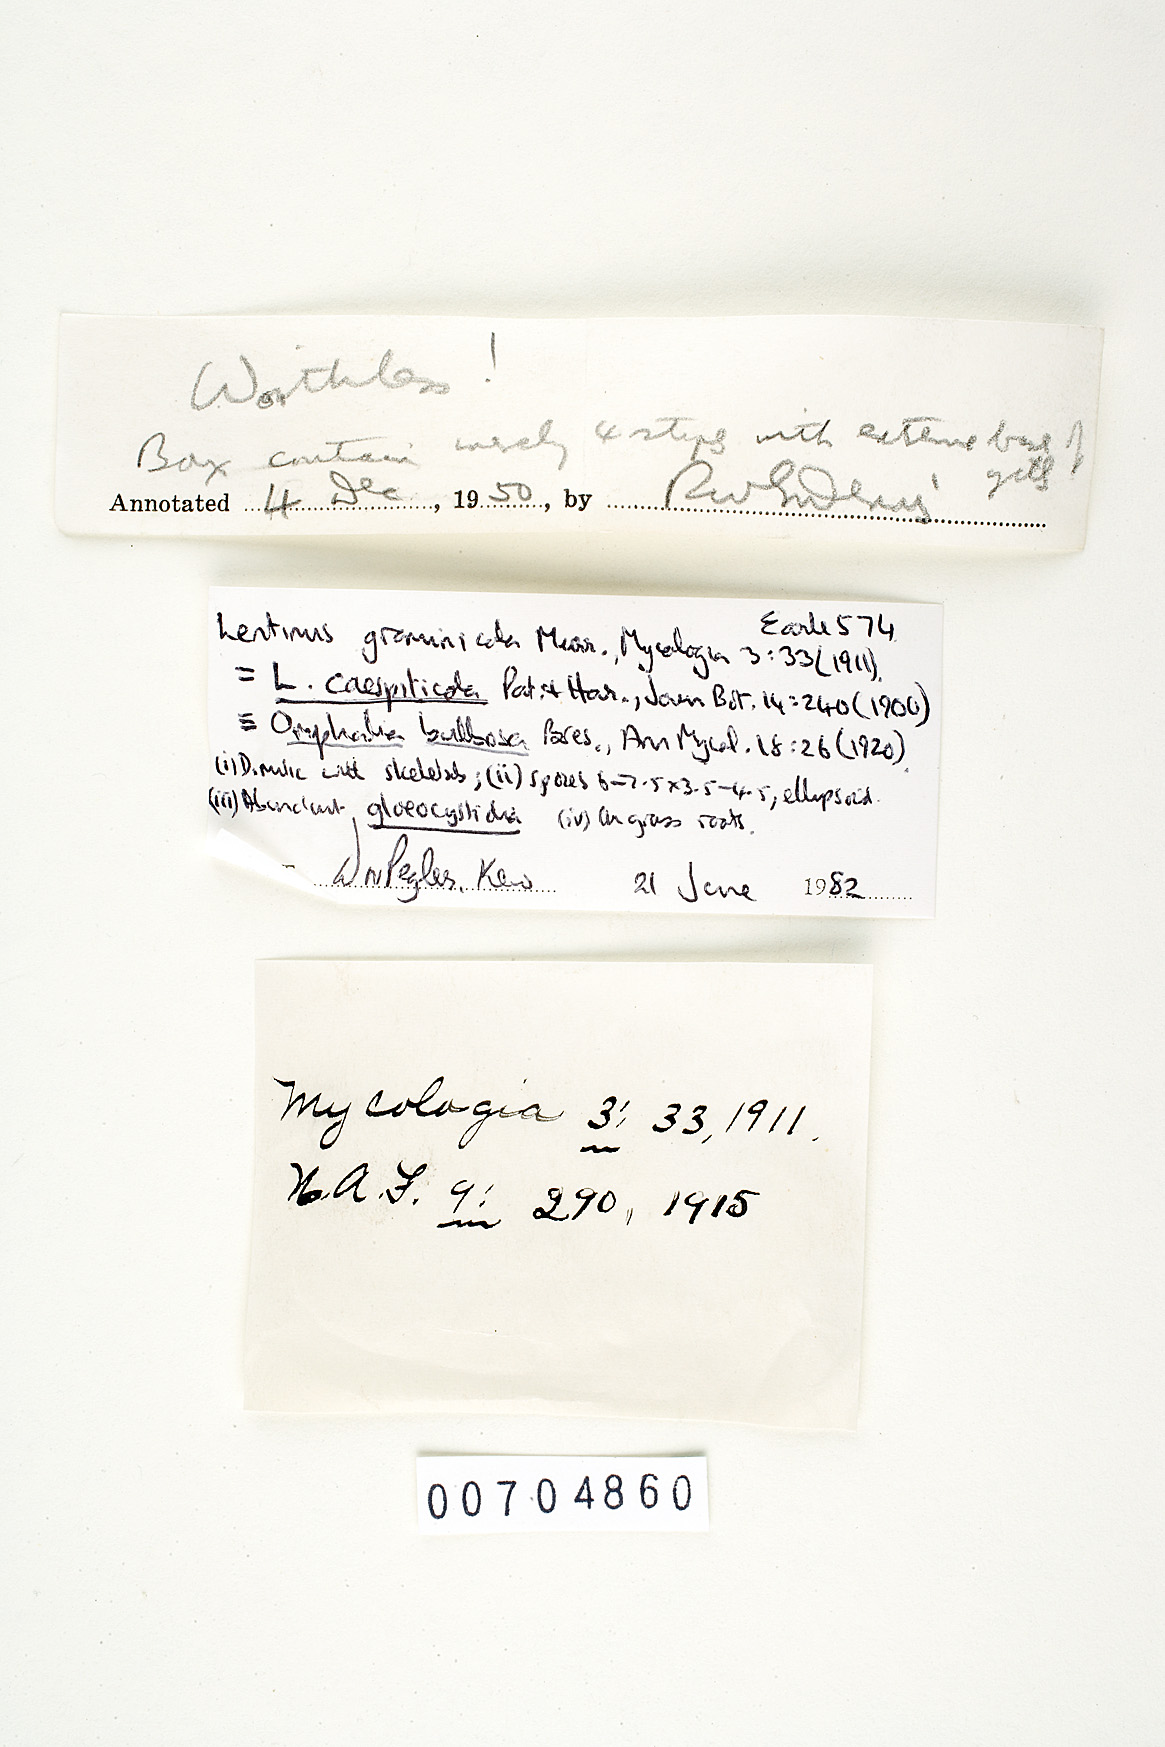 Worthless!
Box contain merely 4 stips with extreme base of
gills
Annotated 4 Dec., 1950, by RWG Dennis
Earle 574
Lentinus graminicola Murr., Mycologia 3:33(1911).
= L. caespiticola Pat. & Har., Journ Bot. 14:240(1900)
≡ Omphalia bulbosa Bres., Ann Mycol. 18:26(1920)
(i) Dimitic with skeletals; (ii) spores 6-7.5x3.5-4.5, ellipsoid.
(iii) Abundant gloeocystidia (iv) On grass roots.
DN Pegler, Kew 21 June 1982
Mycologia 3: 33, 1911.
N.A.F. 9: 290, 1915
00704860